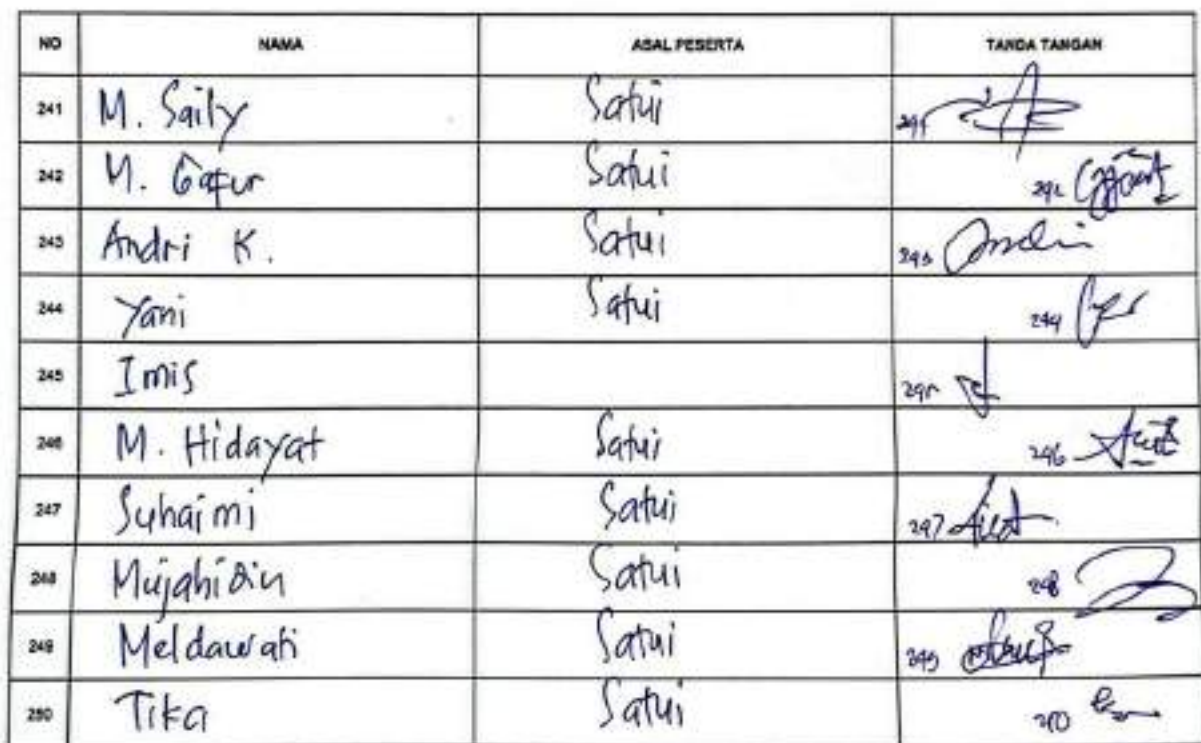 NO NAMA ASAL PESERTA TANDA TANGAN
241 M. Saily Satui 241
242 M. Gafur Satui 242
243 Andri K. Satui 243
244 Yani Satui 244
245 Imis 245
246 M. Hidayat Satui 246
247 Suhaimi Satui 247
248 Mujahidin Satui 248
249 Meldawati Satui 249
250 Tika Satui 250